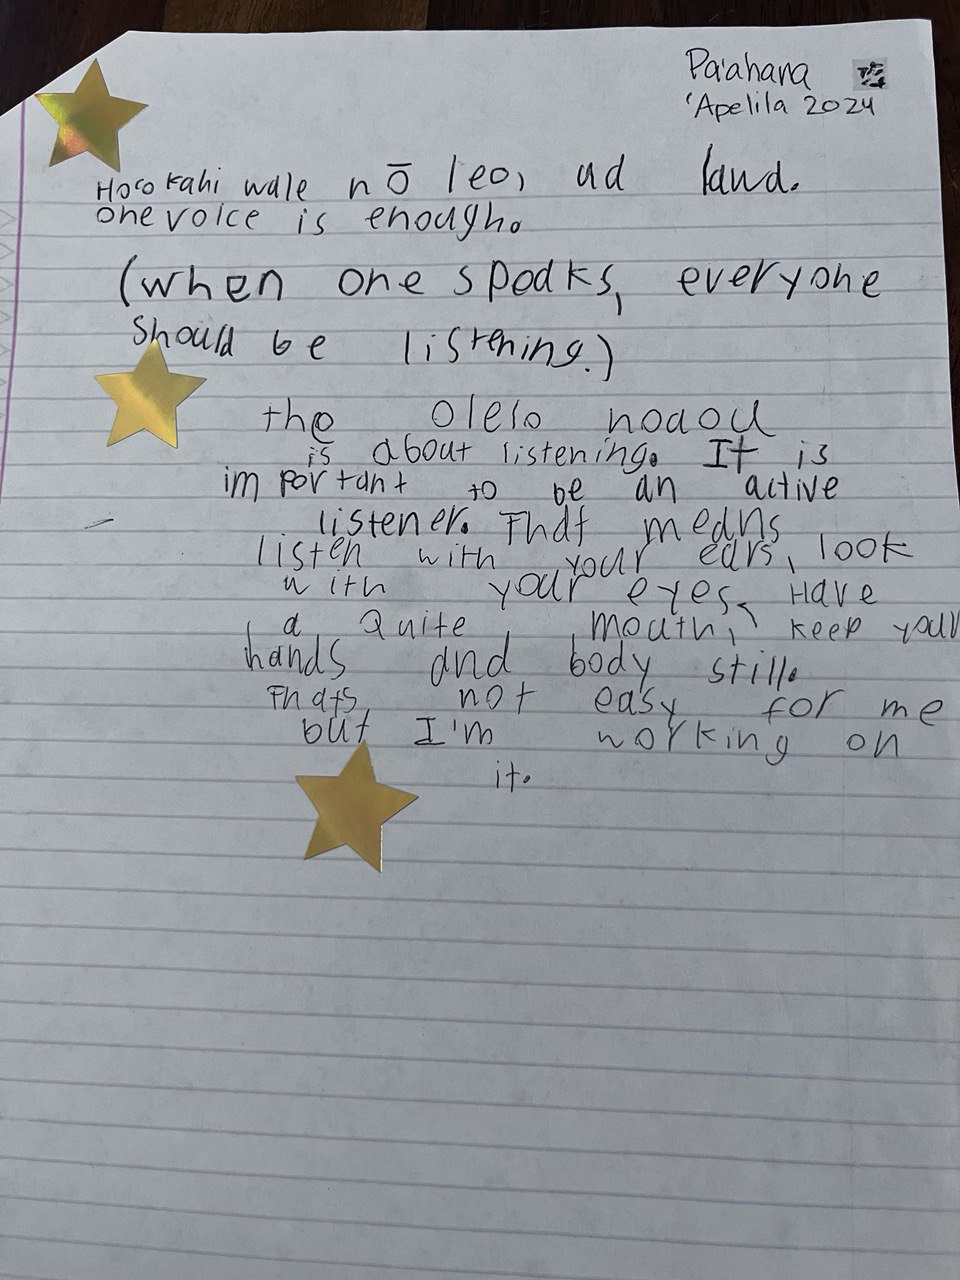 Pa'ahana
'Apelila 2024
Hoʻo kahi wale nō leo, ua lawa.
one voice is enough.
(when one spoaks, everyone
should be listening.)
the olelo noaou
is about listening. It is
important to be an active
listener. That means
listen with your ears, look
with your eyes, Have
a Quite mouth, keep your
hands and body still.
Thats not easy for me
but I'm working on
it.